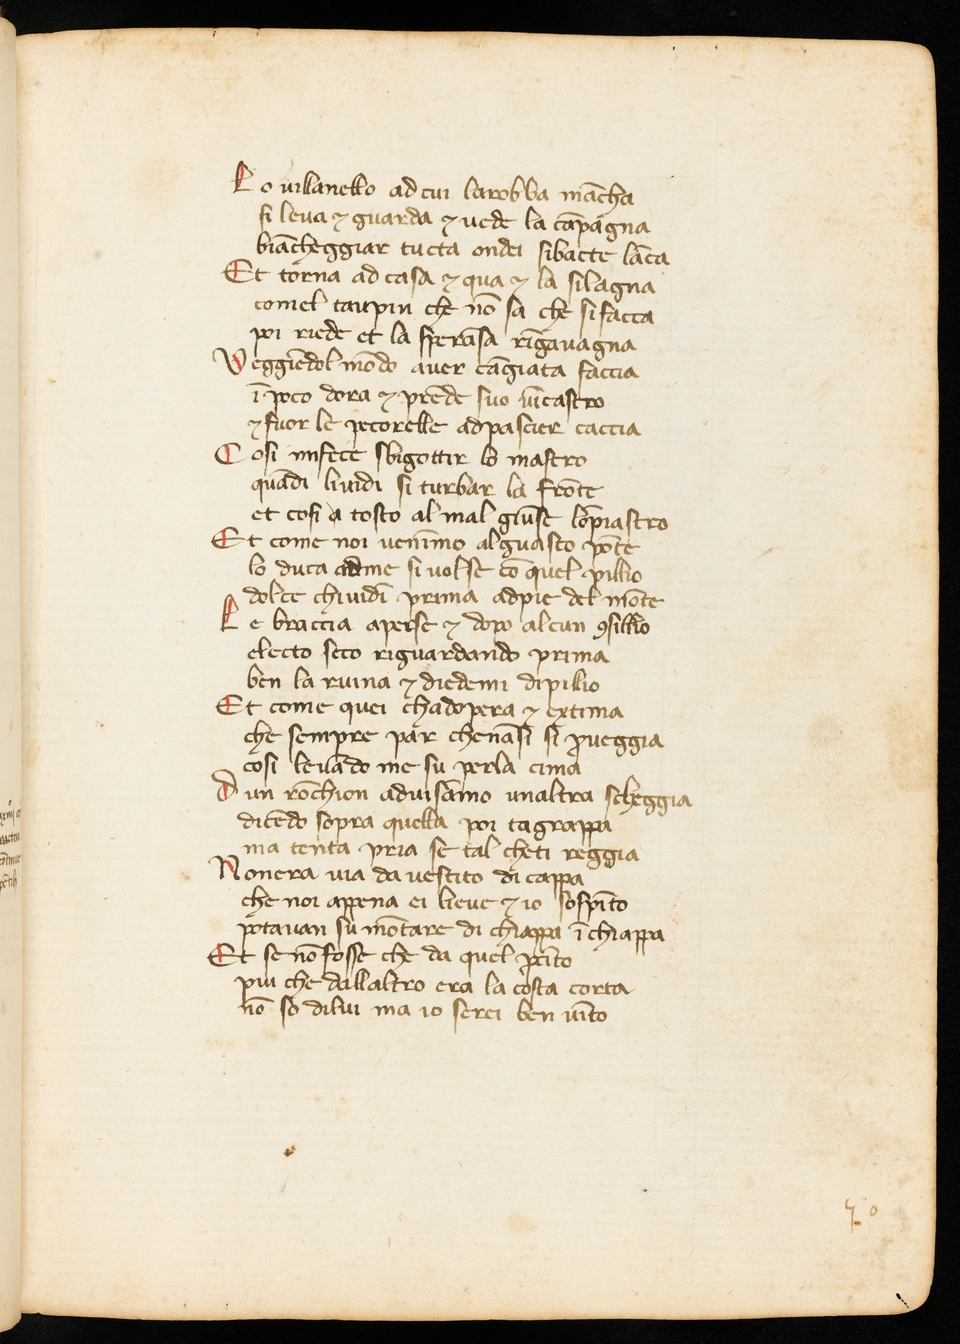 Lo uillanello ad cui larobba mācha
si leua ⁊ guarda ⁊ uede la cāpagna
biācheggiar tucta ondei sibacte lāca
Et torna ad casa ⁊ qua ⁊ la silagna
comel taupin che nō sa che sifacca
poi riede et la sperāsa rīgauagna
Veggiēdol mōdo auer cāgiata faccia
ī poco dora ⁊ prēde suo uīcastro
⁊ fuor le pecorelle adpascier caccia
Cosi mifece sbigottir lo mastro
quādi liuidi si turbar la frōte
et cosi a tosto al mal giūse lōpiastro
Et come noi uenīmo alguasto pōte
lo duca adme si volse cō quel pillio
dolce chiuidī prima adpie del mōte
Le braccia aperse ⁊ dopo alcun ꝯsillio
electo seco riguardando prima
ben la ruina ⁊ diedemi dipillio
Et come quei chadopera ⁊ extima
che sempre par chenāsi si ꝓueggia
cosi leuādo me su perla cima
Dun rōchion aduisamo unaltra scheggia
dicēdo sopra quella poi tagrappa
ma tenta pria se tal cheti reggia
Nonera uia da uestito di cappa
che noi appena ei lieue ⁊ io sospīto
potauan su mōtare di chiappa ī chiappa
Et se nō fosse che da quel ꝑcīto
piu che dallaltro era la costa corta
nō so dilui ma io serei ben uīto